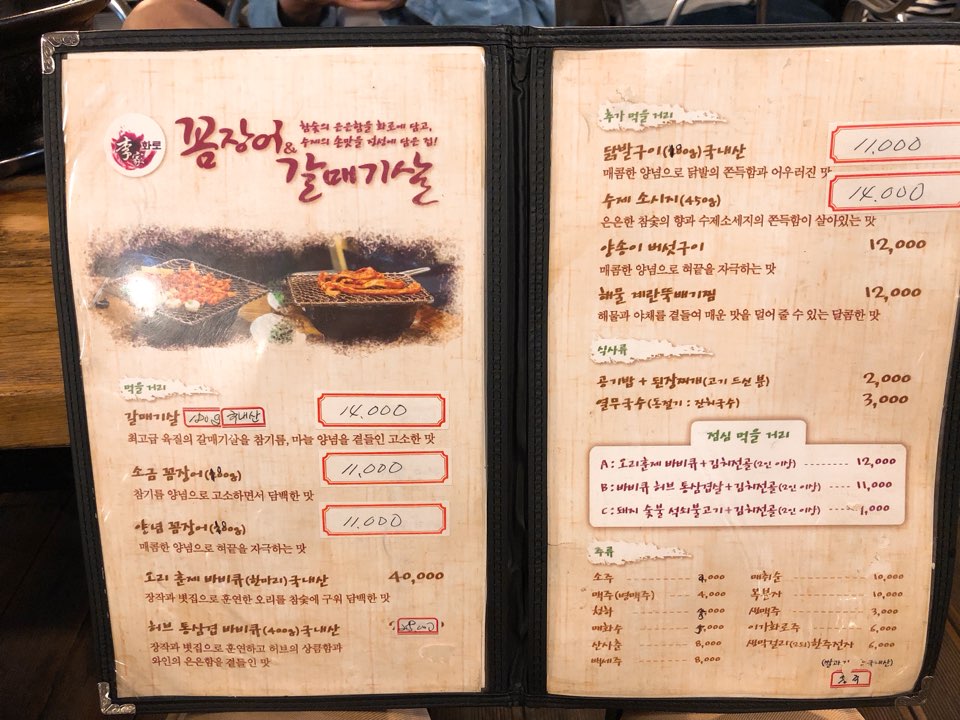 李家
화로
꼼장어
&
갈매기살
참숯의 은은함을 화로에 담고,
수제의 손맛을 정성에 담은 집!
먹을 거리
갈매기살 국내산 14,000
최고급 육질의 갈매기살을 참기름, 마늘 양념을 곁들인 고소한 맛
소금 꼼장어 11,000
참기름 양념으로 고소하면서 담백한 맛
양념 꼼장어 11,000
매콤한 양념으로 혀끝을 자극하는 맛
오리 훈제 바비큐(한마리)국내산 40,000
장작과 볏짚으로 훈연한 오리를 참숯에 구워 담백한 맛
허브 통삼겹 바비큐(400g)국내산
장작과 볏짚으로 훈연하고 허브의 상큼함과
와인의 은은함을 곁들인 맛
추가 먹을 거리
닭발구이 국내산 11,000
매콤한 양념으로 닭발의 쫀득함과 어우러진 맛
수제 소시지(450g) 14,000
은은한 참숯의 향과 수제소세지의 쫀득함이 살아있는 맛
양송이 버섯구이 12,000
매콤한 양념으로 혀끝을 자극하는 맛
해물 계란뚝배기찜 12,000
해물과 야채를 곁들여 매운 맛을 덜어 줄 수 있는 달콤한 맛
식사류
공기밥 + 된장찌개(고기 드신 분) 2,000
열무국수(동절기 : 잔치국수) 3,000
점심 먹을 거리
A : 오리훈제 바비큐+김치전골(2인 이상) 12,000
B : 바비큐 허브 통삼겹살+김치전골(2인 이상) 11,000
C : 돼지 숯불 석쇠불고기+김치전골(2인 이상)
주류
소주 매취순 10,000
맥주(병맥주) 4,000 복분자 10,000
청하 생맥주 3,000
매화수 이가화로주 6,000
산사춘 8,000 생막걸리(2되)한주전자 6,000
백세주 8,000
국내산)